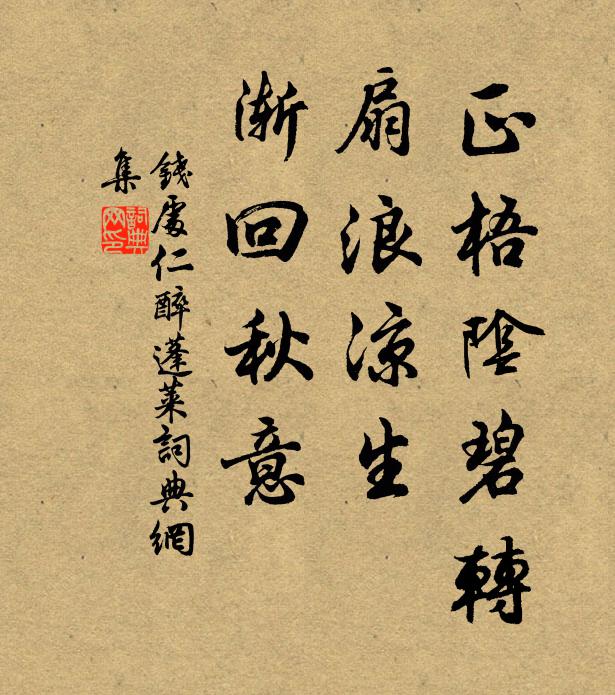 正梧陰碧轉
扇浪涼生
漸回秋意
錢處仁醉蓬萊詞典網
集
詞典
网印